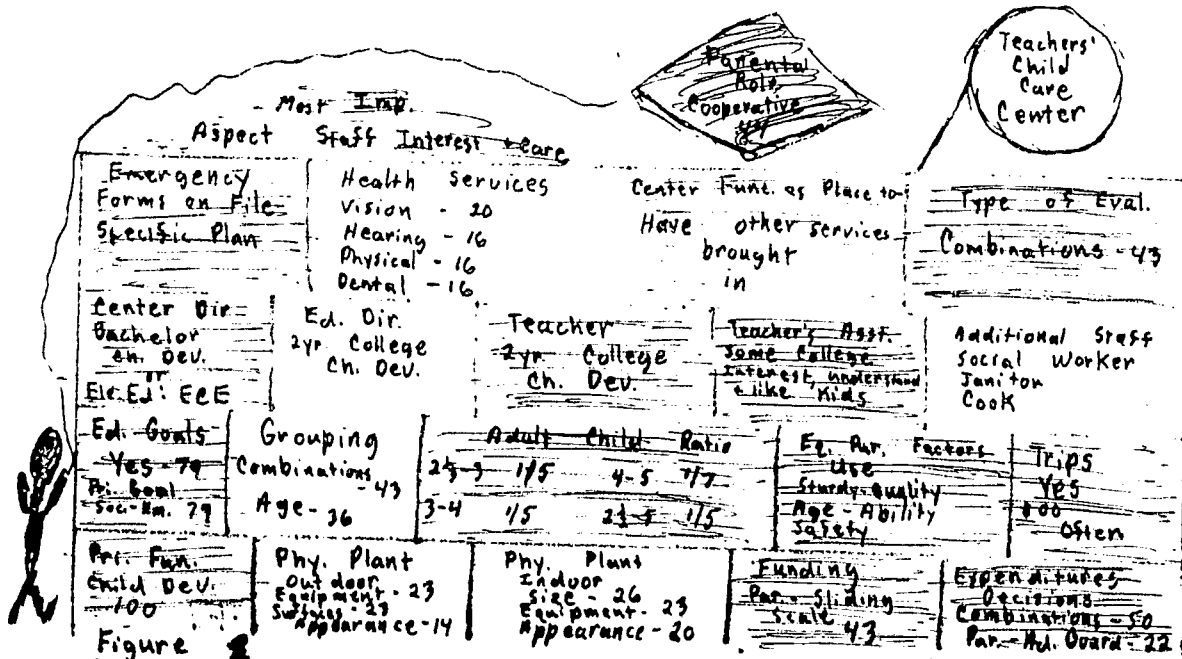 Teachers'
Child
Care
Center
Parental
Role
Cooperative
Most Imp.
Aspect Staff Interest + Care
Emergency
Forms on File
Specific Plan
Health Services
Vision - 20
Hearing - 16
Physical - 16
Dental - 16
Center Funt. as Place to
Have other services
brought
in
Type of Eval.
Combinations - 43
Center Dir.
Bachelor
Ch. Dev.
or
Ele. Ed: ECE
Ed. Dir.
2yr. College
Ch. Dev.
Teacher
2yr. College
Ch. Dev.
Teacher's Asst.
Some College
Interest, understand
+ like kids
Additional Staff
Social Worker
Janitor
Cook
Ed. Goals
Yes - 79
Pri. Goal
Soc.-Em. 79
Grouping
Combinations - 43
Age - 36
Adult Child Ratio
1/5 4-5 1/7
3-4 1/5 1/5
Eq. Pur. Factors
Use
Sturdy-Quality
Age - Ability
Safety
Trips
Yes
100
Often
Pri. Fun.
Child Dev.
100
Phy. Plant
Outdoor
Equipment - 23
Surfaces - 23
Appearance - 14
Phy. Plant
Indoor
Size - 26
Equipment - 23
Appearance - 20
Funding
Par. - Sliding
Scale 43
Expenditures
Decisions
Combinations - 50
Par. - Ad. Board - 22
Figure